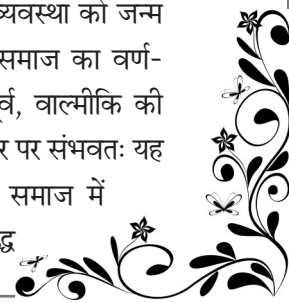 व्यवस्था को जन्म
समाज का वर्ण-
वाल्मीकि की
पर संभवतः यह
समाज में